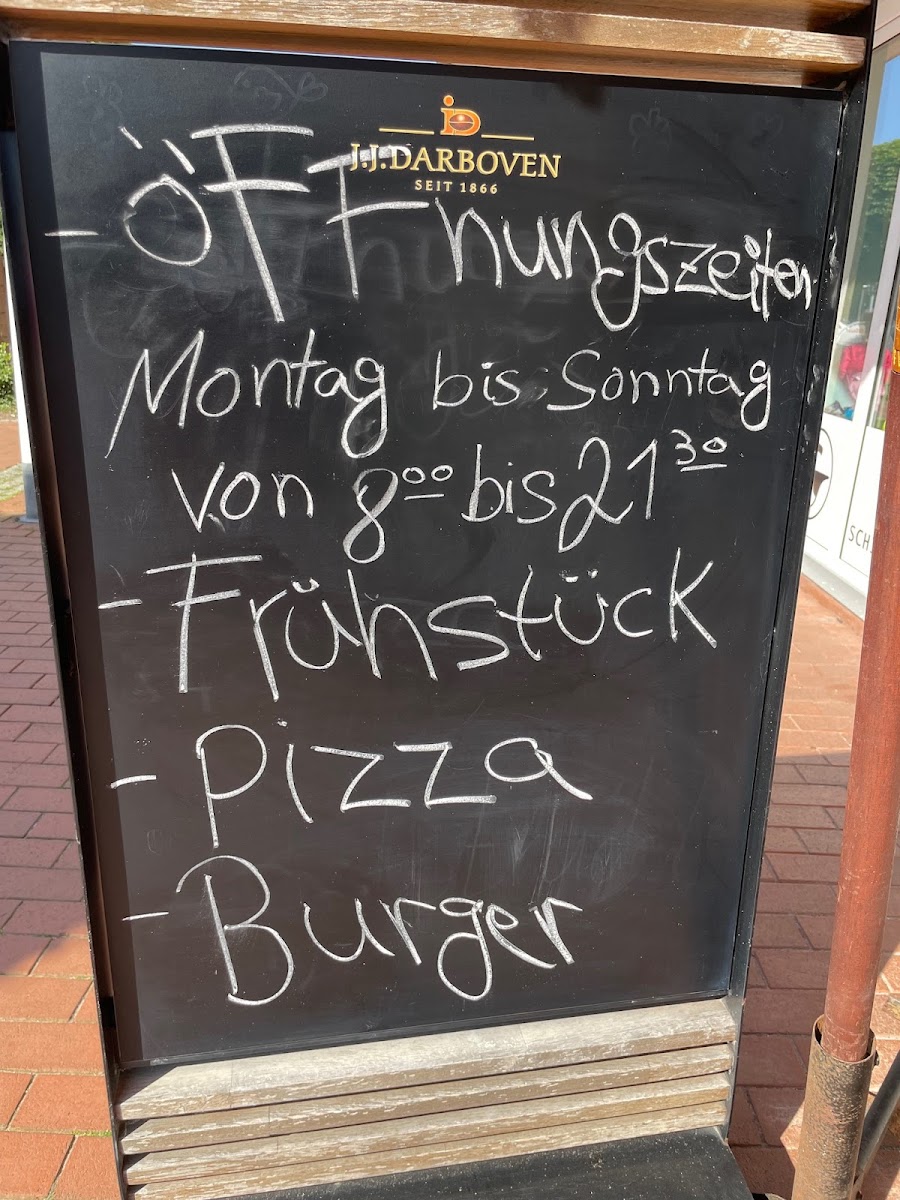 J.J.DARBOVEN
SEIT 1866
- ÖFFnungszeiten
Montag bis Sonntag
von 8⁰⁰ bis 21³⁰
- Frühstück
- Pizza
- Burger
SCH